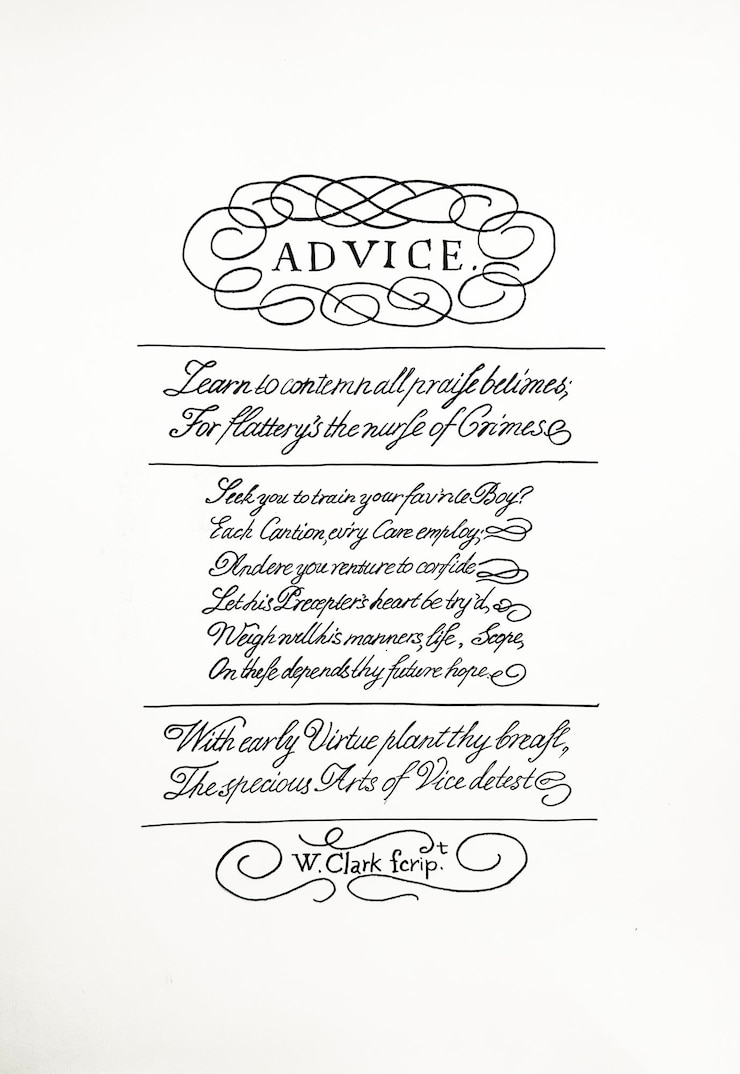 ADVICE.
Learn to contemn all praiſe betimes;
For flattery's the nurſe of Crimes
Seek you to train your fav'rite Boy?
Each Caution, ev'ry Care employ;
And ere you venture to confide
Let his Precepter's heart be try'd,
Weigh well his manners, life, Scope,
On theſe depends thy future hope.
With early Virtue plant thy breaſt,
The specious Arts of Vice detest
W. Clark ſcrip.t